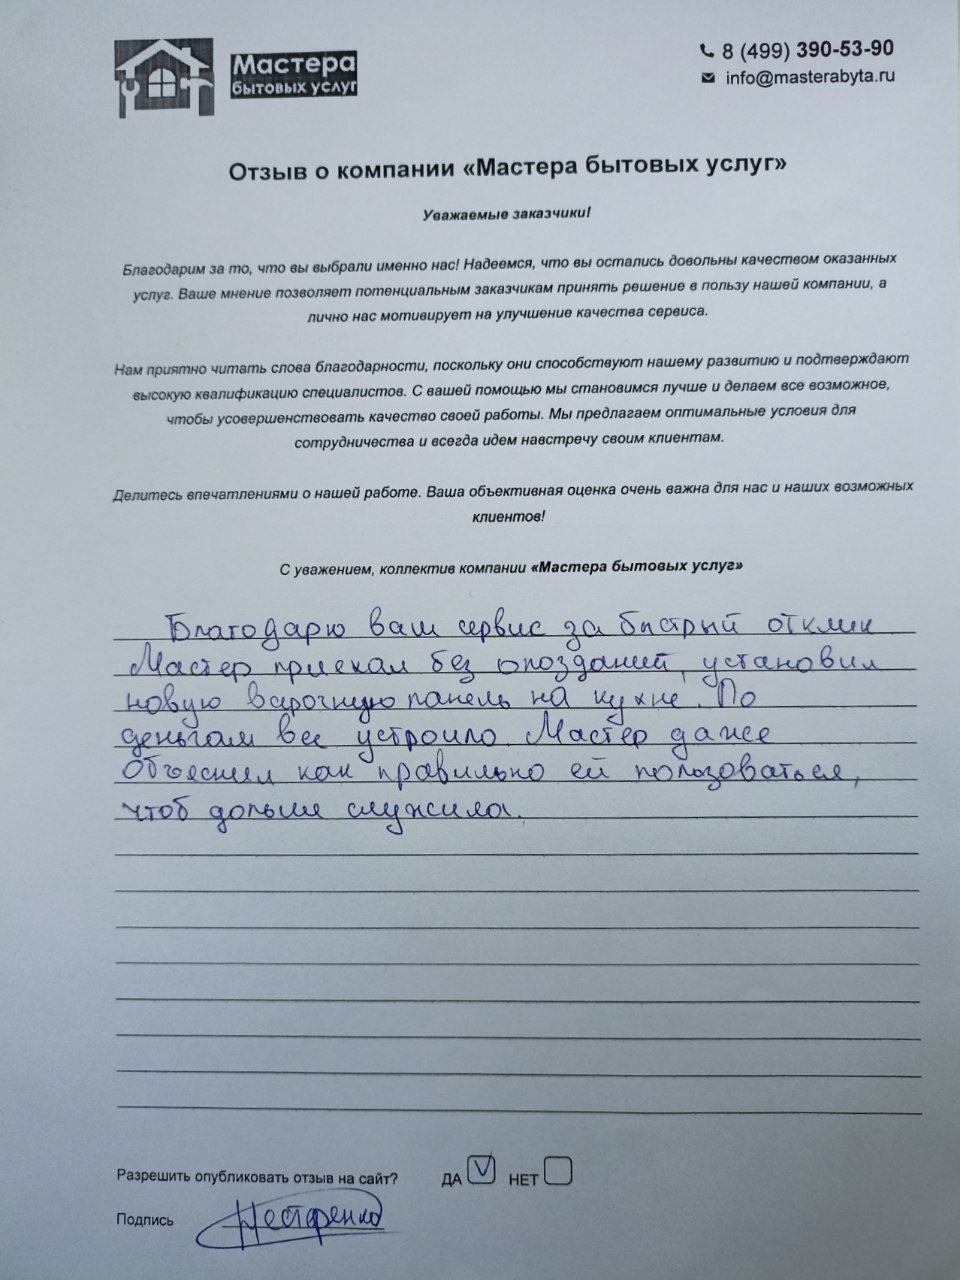 Мастера
бытовых услуг
8 (499) 390-53-90
info@masterabyta.ru
Отзыв о компании «Мастера бытовых услуг»
Уважаемые заказчики!
Благодарим за то, что вы выбрали именно нас! Надеемся, что вы остались довольны качеством оказанных
услуг. Ваше мнение позволяет потенциальным заказчикам принять решение в пользу нашей компании, а
лично нас мотивирует на улучшение качества сервиса.
Нам приятно читать слова благодарности, поскольку они способствуют нашему развитию и подтверждают
высокую квалификацию специалистов. С вашей помощью мы становимся лучше и делаем все возможное,
чтобы усовершенствовать качество своей работы. Мы предлагаем оптимальные условия для
сотрудничества и всегда идем навстречу своим клиентам.
Делитесь впечатлениями о нашей работе. Ваша объективная оценка очень важна для нас и наших возможных
клиентов!
С уважением, коллектив компании «Мастера бытовых услуг»
Благодарю ваш сервис за быстрый отклик
Мастер приехал без опозданий, установил
новую варочную панель на кухне. По
деньгам все устроило. Мастер даже
Объяснил как правильно ей пользоваться,
чтоб дольше служила.
Разрешить опубликовать отзыв на сайт? ДА V НЕТ
Подпись Нестеренко